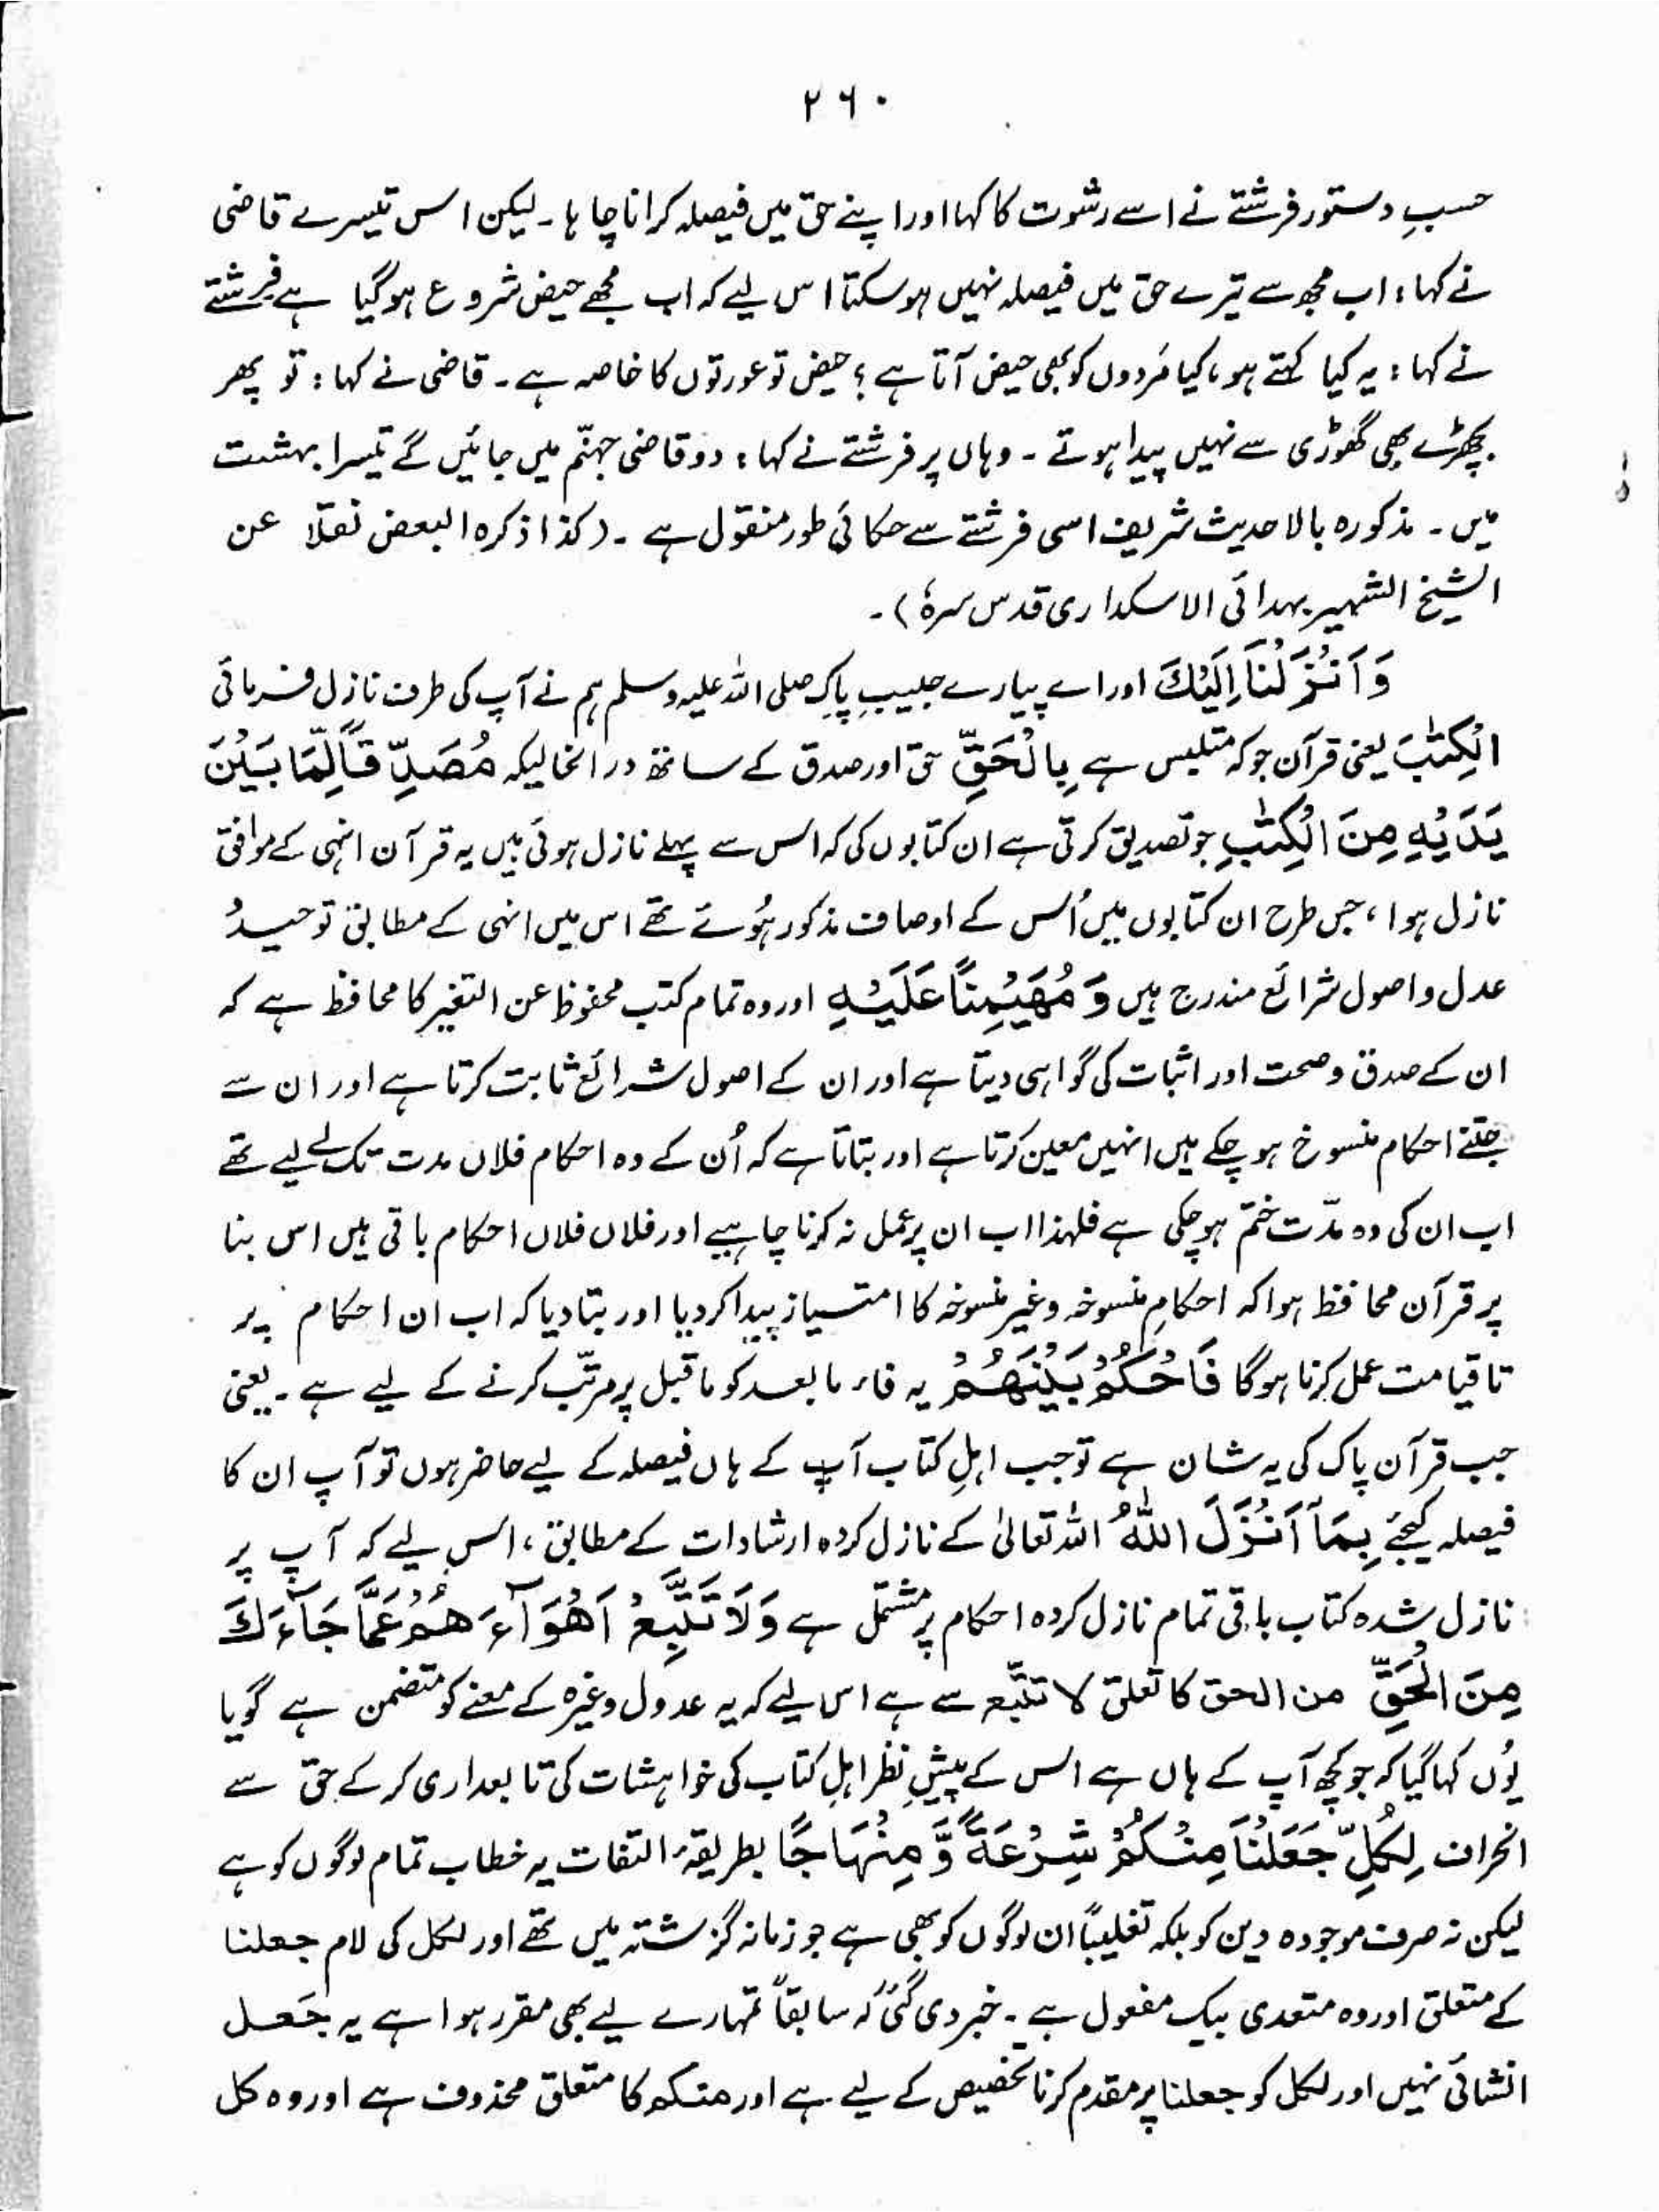 ۲۶۰
حسبِ دستور فرشتے نے اسے رشوت کا کہا اور اپنے حق میں فیصلہ کرانا چاہا۔ لیکن اس تیسرے قاضی
نے کہا: اب مجھ سے تیرے حق میں فیصلہ نہیں ہو سکتا اس لیے کہ اب مجھے حیض شروع ہو گیا ہے فرشتے
نے کہا: یہ کیا کہتے ہو، کیا مَردوں کو بھی حیض آتا ہے؟ حیض تو عورتوں کا خاصہ ہے۔ قاضی نے کہا: تو پھر
بچھڑے بھی گھوڑی سے نہیں پیدا ہوتے۔ وہاں پر فرشتے نے کہا: دو قاضی جہنّم میں جائیں گے تیسرا بہشت
میں۔ مذکورہ بالا حدیث شریف اسی فرشتے سے حکائی طور منقول ہے۔ (کذا ذکرہ البعض نقلًا عن
الشیخ الشہیر بہدائی الاسکداری قدس سرہٗ)۔
وَاَنْزَلْنَآ اِلَیْكَ اور اے پیارے حبیبِ پاک صلی اللہ علیہ وسلم ہم نے آپ کی طرف نازل فرمائی
الْکِتٰبَ یعنی قرآن جو کہ متلبس ہے بِالْحَقِّ حق اور صدق کے ساتھ در انحالیکہ مُصَدِّقًا لِّمَا بَیْنَ
یَدَیْهِ مِنَ الْکِتٰبِ جو تصدیق کرتی ہے ان کتابوں کی کہ اس سے پہلے نازل ہوئی ہیں یہ قرآن انہی کے موافق
نازل ہوا، جس طرح ان کتابوں میں اُس کے اوصاف مذکور ہُوئے تھے اس میں انہی کے مطابق توحید و
عدل و اصول شرائع مندرج ہیں وَمُهَیْمِنًا عَلَیْهِ اور وہ تمام کتب محفوظ عن التغیر کا محافظ ہے کہ
ان کے صدق و صحت اور اثبات کی گواہی دیتا ہے اور ان کے اصول شرائع ثابت کرتا ہے اور ان سے
جتنے احکام منسوخ ہو چکے ہیں انہیں معین کرتا ہے اور بتاتا ہے کہ اُن کے وہ احکام فلاں مدت تک کے لیے تھے
اب ان کی وہ مدّت ختم ہو چکی ہے فلہٰذا اب ان پر عمل نہ کرنا چاہیے اور فلاں فلاں احکام باقی ہیں اس بنا
پر قرآن محافظ ہوا کہ احکامِ منسوخہ و غیر منسوخہ کا امتیاز پیدا کر دیا اور بتا دیا کہ اب ان احکام پر
تا قیامت عمل کرنا ہو گا فَاحْکُمْ بَیْنَهُمْ یہ فاء ما بعد کو ما قبل پر مرتّب کرنے کے لیے ہے۔ یعنی
جب قرآن پاک کی یہ شان ہے تو جب اہلِ کتاب آپ کے ہاں فیصلہ کے لیے حاضر ہوں تو آپ ان کا
فیصلہ کیجئے بِمَآ اَنْزَلَ اللّٰهُ اللہ تعالیٰ کے نازل کردہ ارشادات کے مطابق، اس لیے کہ آپ پر
نازل شدہ کتاب باقی تمام نازل کردہ احکام پر مشتمل ہے وَلَا تَتَّبِعْ اَهْوَآءَهُمْ عَمَّا جَآءَكَ
مِنَ الْحَقِّ من الحق کا تعلق لا تتّبع سے ہے اس لیے کہ یہ عدول وغیرہ کے معنے کو متضمن ہے گویا
یُوں کہا گیا کہ جو کچھ آپ کے ہاں ہے اس کے پیشِ نظر اہلِ کتاب کی خواہشات کی تابعداری کر کے حق سے
انحراف لِکُلٍّ جَعَلْنَا مِنْکُمْ شِرْعَةً وَّ مِنْهَاجًا بطریقۂ التفات یہ خطاب تمام لوگوں کو ہے
لیکن نہ صرف موجودہ دین کو بلکہ تغلیبًا ان لوگوں کو بھی ہے جو زمانہ گزشتہ میں تھے اور لکل کی لام جعلنا
کے متعلق اور وہ متعدی بیک مفعول ہے۔ خبر دی گئی کہ سابقاً تمہارے لیے بھی مقرر ہوا ہے یہ جَعل
انشائی نہیں اور لکل کو جعلنا پر مقدم کرنا تخصیص کے لیے ہے اور منکم کا متعلق محذوف ہے اور وہ کل